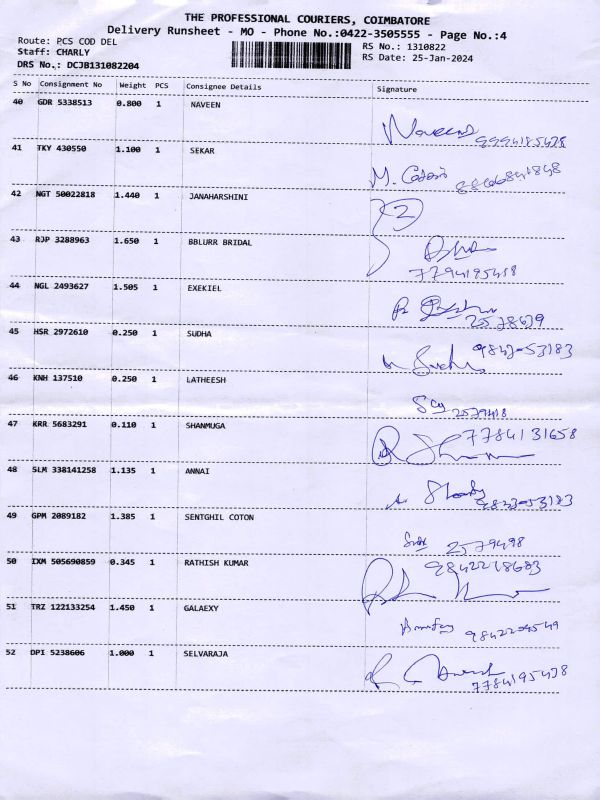 THE PROFESSIONAL COURIERS, COIMBATORE
Delivery Runsheet - MO - Phone No.:0422-3505555 - Page No.:4
Route: PCS COD DEL
Staff: CHARLY
DRS No.: DCJB131082204
RS No.: 1310822
RS Date: 25-Jan-2024
S No Consignment No Weight PCS Consignee Details Signature
40 GDR 5338513 0.800 1 NAVEEN
Naveen
41 TKY 430550 1.100 1 SEKAR
M.
42 NGT 50022818 1.440 1 JANAHARSHINI
2
43 RJP 3288963 1.650 1 BBLURR BRIDAL
7794195418
44 NGL 2493627 1.505 1 EXEKIEL
2578679
45 HSR 2972610 0.250 1 SUDHA
9843-53183
46 KNH 137510 0.250 1 LATHEESH
2579418
47 KRR 5683291 0.110 1 SHANMUGA
7784131658
48 SLM 338141258 1.135 1 ANNAI
9833-53183
49 GPM 2089182 1.385 1 SENTGHIL COTON
2579498
50 IXM 505690859 0.345 1 RATHISH KUMAR
9842218683
51 TRZ 122133254 1.450 1 GALAEXY
52 DPI 5238606 1.000 1 SELVARAJA